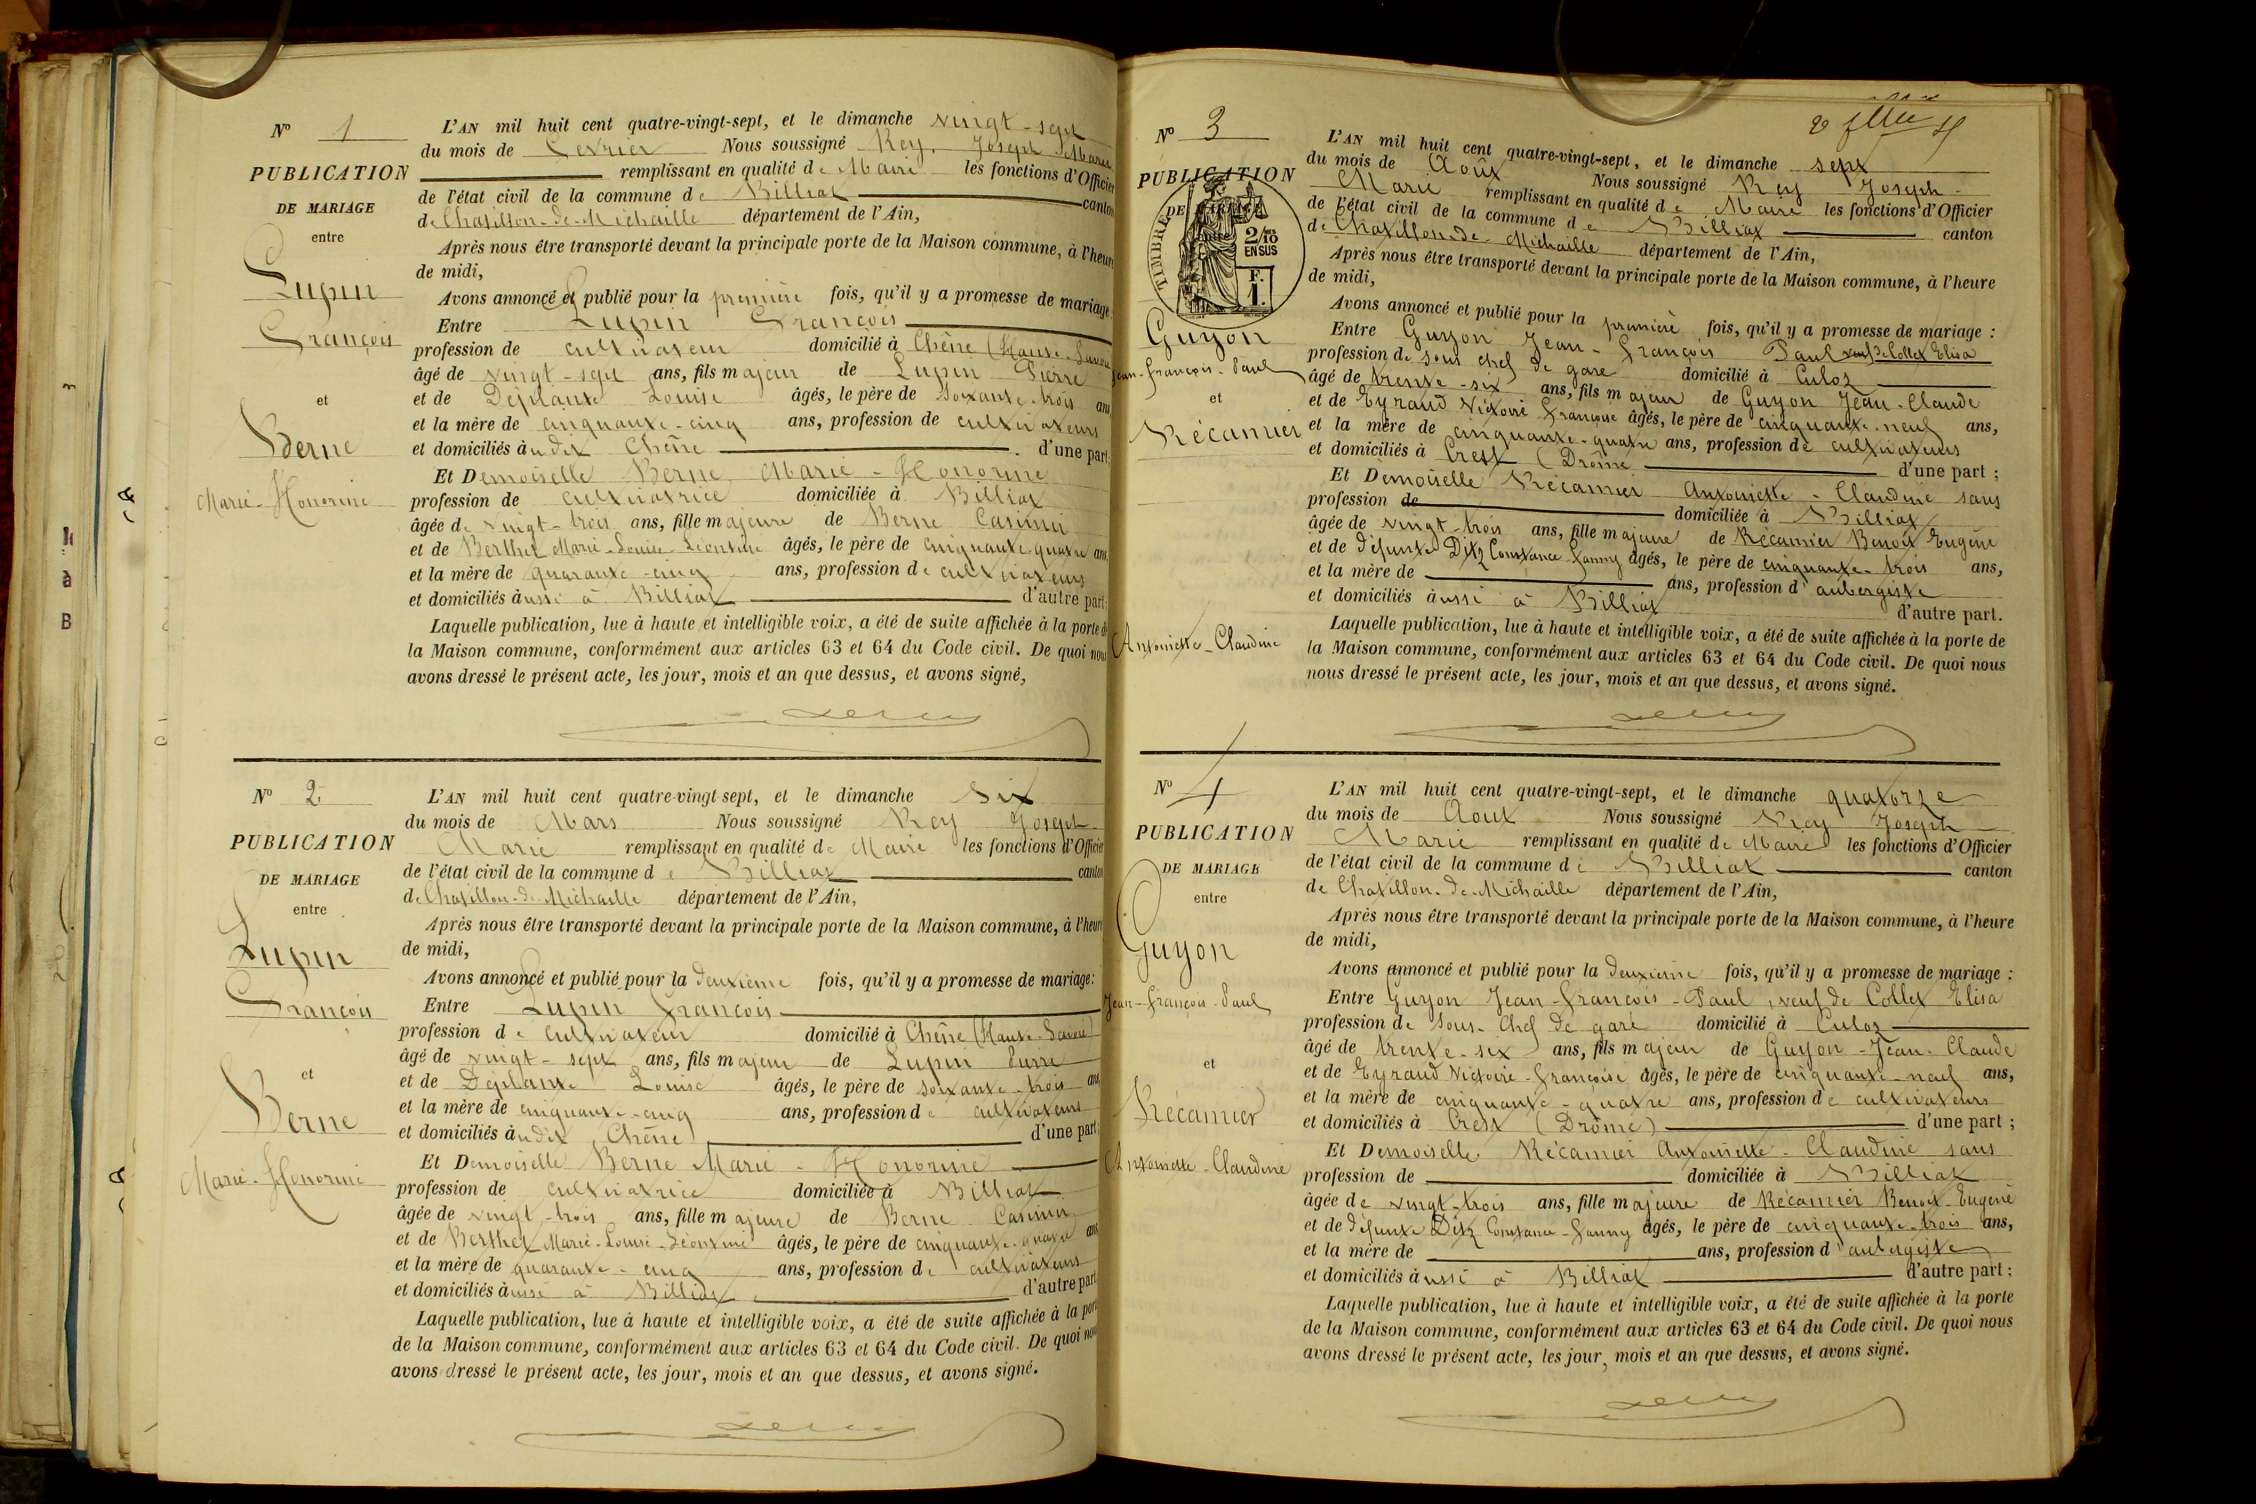 N° 1
PUBLICATION
DE MARIAGE
entre
Lupin
François
et
Berne
Marie-Honorine
L'AN mil huit cent quatre-vingt-sept, et le dimanche vingt-sept
du mois de Février Nous soussigné Rey, Joseph Marie
remplissant en qualité de Maire les fonctions d'Officier
de l'état civil de la commune de Billiat canton
de Chatillon-de-Michaille département de l'Ain,
Après nous être transporté devant la principale porte de la Maison commune, à l'heure
de midi,
Avons annoncé et publié pour la première fois, qu'il y a promesse de mariage
Entre Lupin François
profession de cultivateur domicilié à Chêne (Haute-Savoie
âgé de vingt-sept ans, fils majeur de Lupin Pierre
et de Déplante Louise âgés, le père de Soixante-trois ans
et la mère de cinquante-cinq ans, profession de cultivateurs
et domiciliés audit Chêne d'une part
Et Demoiselle Berne Marie-Honorine
profession de cultivatrice domiciliée à Billiat
âgée de vingt-trois ans, fille majeure de Berne Casimir
et de Berthet Marie-Louise-Léontine âgés, le père de cinquante-quatre ans,
et la mère de quarante-cinq ans, profession de cultivateurs
et domiciliés aussi à Billiat d'autre part;
Laquelle publication, lue à haute et intelligible voix, a été de suite affichée à la porte de
la Maison commune, conformément aux articles 63 et 64 du Code civil. De quoi nous
avons dressé le présent acte, les jour, mois et an que dessus, et avons signé,
N° 2
PUBLICATION
DE MARIAGE
entre
Lupin
François
et
Berne
Marie-Honorine
L'AN mil huit cent quatre-vingt sept, et le dimanche Six
du mois de Mars Nous soussigné Rey Joseph
Marie remplissant en qualité de Maire les fonctions d'Officier
de l'état civil de la commune de Billiat canton
de Chatillon-de-Michaille département de l'Ain,
Après nous être transporté devant la principale porte de la Maison commune, à l'heure
de midi,
Avons annoncé et publié pour la deuxième fois, qu'il y a promesse de mariage:
Entre Lupin François
profession de cultivateur domicilié à Chêne (Haute-Savoie)
âgé de vingt-sept ans, fils majeur de Lupin Pierre
et de Déplante Louise âgés, le père de soixante-trois ans
et la mère de cinquante-cinq ans, profession de cultivateurs
et domiciliés audit Chêne d'une part
Et Demoiselle Berne Marie-Honorine
profession de cultivatrice domiciliée à Billiat
âgée de vingt-trois ans, fille majeure de Berne Casimir
et de Berthet Marie-Louise-Léontine âgés, le père de cinquante-quatre ans
et la mère de quarante-cinq ans, profession de cultivateurs
et domiciliés aussi à Billiat d'autre part
Laquelle publication, lue à haute et intelligible voix, a été de suite affichée à la porte
de la Maison commune, conformément aux articles 63 et 64 du Code civil. De quoi nous
avons dressé le présent acte, les jour, mois et an que dessus, et avons signé.
N° 3
PUBLICATION
DE MARIAGE
TIMBRE
2/10
EN SUS
F.
1.
Guyon
Jean-François-Paul
et
Récamier
Antoinette-Claudine
L'AN mil huit cent quatre-vingt-sept, et le dimanche sept
du mois de Août Nous soussigné Rey Joseph-
Marie remplissant en qualité de Maire les fonctions d'Officier
de l'état civil de la commune de Billiat canton
de Chatillon-de-Michaille département de l'Ain,
Après nous être transporté devant la principale porte de la Maison commune, à l'heure
de midi,
Avons annoncé et publié pour la première fois, qu'il y a promesse de mariage :
Entre Guyon Jean-François Paul veuf de Collet Elisa
profession de sous chef de gare domicilié à Culoz
âgé de trente-six ans, fils majeur de Guyon Jean-Claude
et de Eyraud Victoire Françoise âgés, le père de cinquante-neuf ans,
et la mère de cinquante-quatre ans, profession de cultivateurs
et domiciliés à Crest (Drôme d'une part ;
Et Demoiselle Récamier Antoinette-Claudine sans
profession de domiciliée à Billiat
âgée de vingt-trois ans, fille majeure de Récamier Benoit Eugène
et de défunte Ditz Constance Fanny âgés, le père de cinquante-trois ans,
et la mère de ans, profession d'aubergiste
et domiciliés aussi à Billiat d'autre part.
Laquelle publication, lue à haute et intelligible voix, a été de suite affichée à la porte de
la Maison commune, conformément aux articles 63 et 64 du Code civil. De quoi nous
nous dressé le présent acte, les jour, mois et an que dessus, et avons signé.
N° 4
PUBLICATION
DE MARIAGE
entre
Guyon
Jean-François-Paul
et
Récamier
Antoinette-Claudine
L'AN mil huit cent quatre-vingt-sept, et le dimanche quatorze
du mois de Août Nous soussigné Rey Joseph
Marie remplissant en qualité de Maire les fonctions d'Officier
de l'état civil de la commune de Billiat canton
de Chatillon-de-Michaille département de l'Ain,
Après nous être transporté devant la principale porte de la Maison commune, à l'heure
de midi,
Avons annoncé et publié pour la deuxième fois, qu'il y a promesse de mariage :
Entre Guyon Jean-François-Paul, veuf de Collet Elisa
profession de sous-chef de gare domicilié à Culoz
âgé de trente-six ans, fils majeur de Guyon-Jean-Claude
et de Eyraud Victoire-Françoise âgés, le père de cinquante-neuf ans,
et la mère de cinquante-quatre ans, profession de cultivateurs
et domiciliés à Crest (Drôme) d'une part ;
Et Demoiselle Récamier Antoinette-Claudine sans
profession de domiciliée à Billiat
âgée de vingt-trois ans, fille majeure de Récamier Benoit-Eugène
et de défunte Ditz Constance-Fanny âgés, le père de cinquante-trois ans,
et la mère de ans, profession d'aubergiste
et domiciliés aussi à Billiat d'autre part ;
Laquelle publication, lue à haute et intelligible voix, a été de suite affichée à la porte
de la Maison commune, conformément aux articles 63 et 64 du Code civil. De quoi nous
avons dressé le présent acte, les jour, mois et an que dessus, et avons signé.